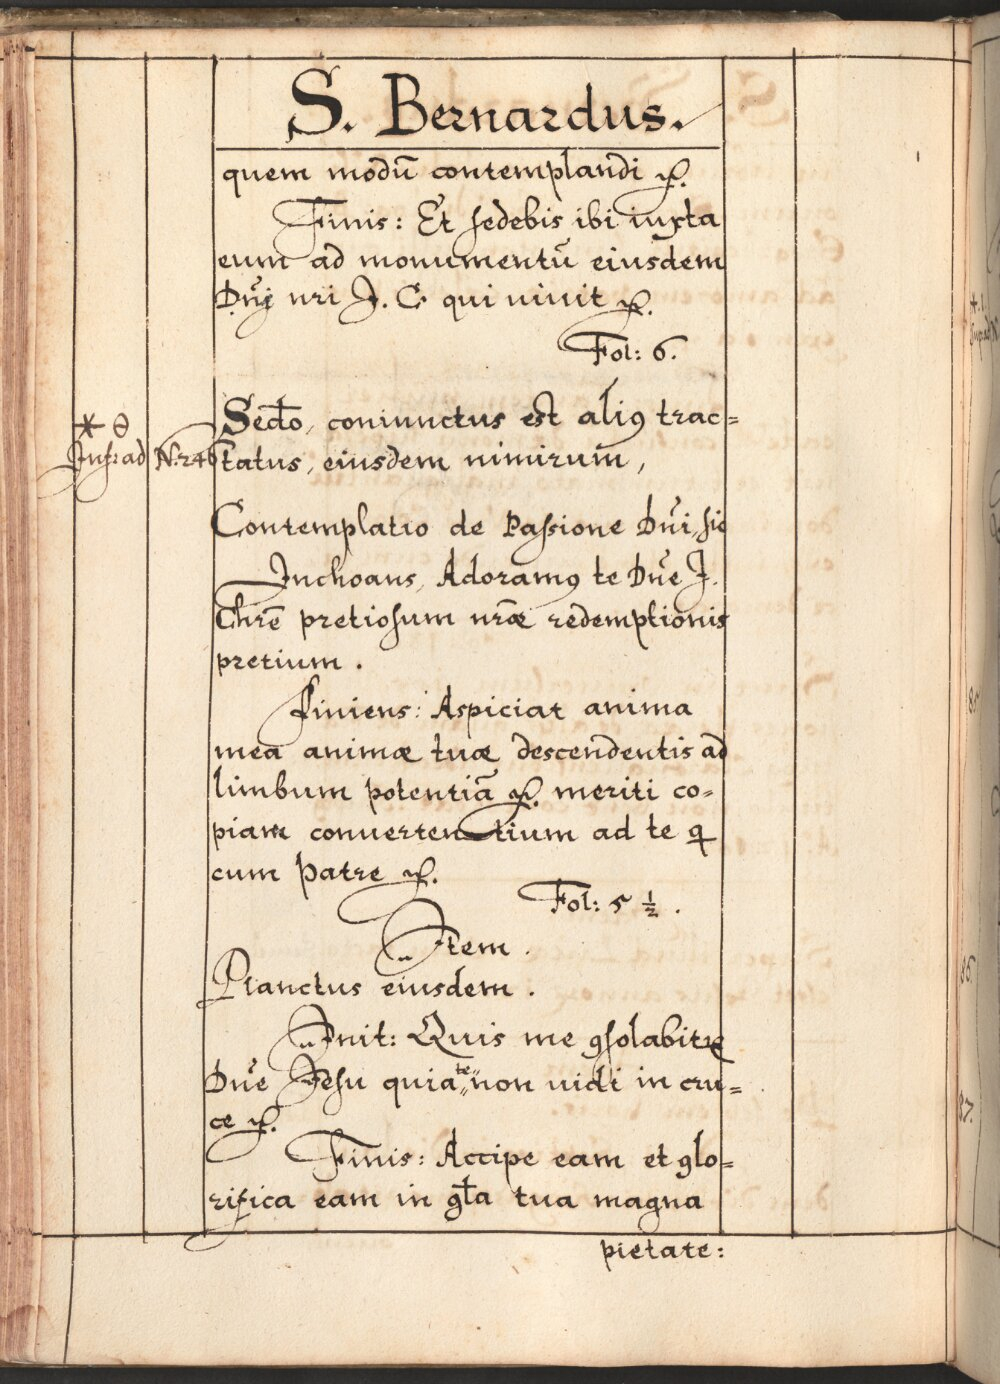 S. Bernardus.
quem modū contemplandi &c.
Finis: Et sedebis ibi iuxta
eum ad monumentū eiusdem
Dn̄j nri J. C. qui uiuit &c.
Fol: 6.
Secdo, coniunctus est aliꝰ trac=
* θ
Infra ad N: 246
tatus, eiusdem nimirum,
Contemplatio de Passione Dn̄i, sic
Inchoans, Adoramꝰ te Dn̄e J.
Chrē pretiosum nr̄æ redemptionis
pretium.
finiens: Aspiciat anima
mea animæ tuæ descendentis ad
limbum potentiā &c. meriti co=
piam conuertentium ad te q
cum patre &c.
Fol: 5 ½.
Item.
Planctus eiusdem.
Init: Quis me ꝯsolabitur
Dn̄e Jesu quia te non uidi in cru=
ce &c.
Finis: Accipe eam et glo=
rifica eam in gła tua magna
pietate: